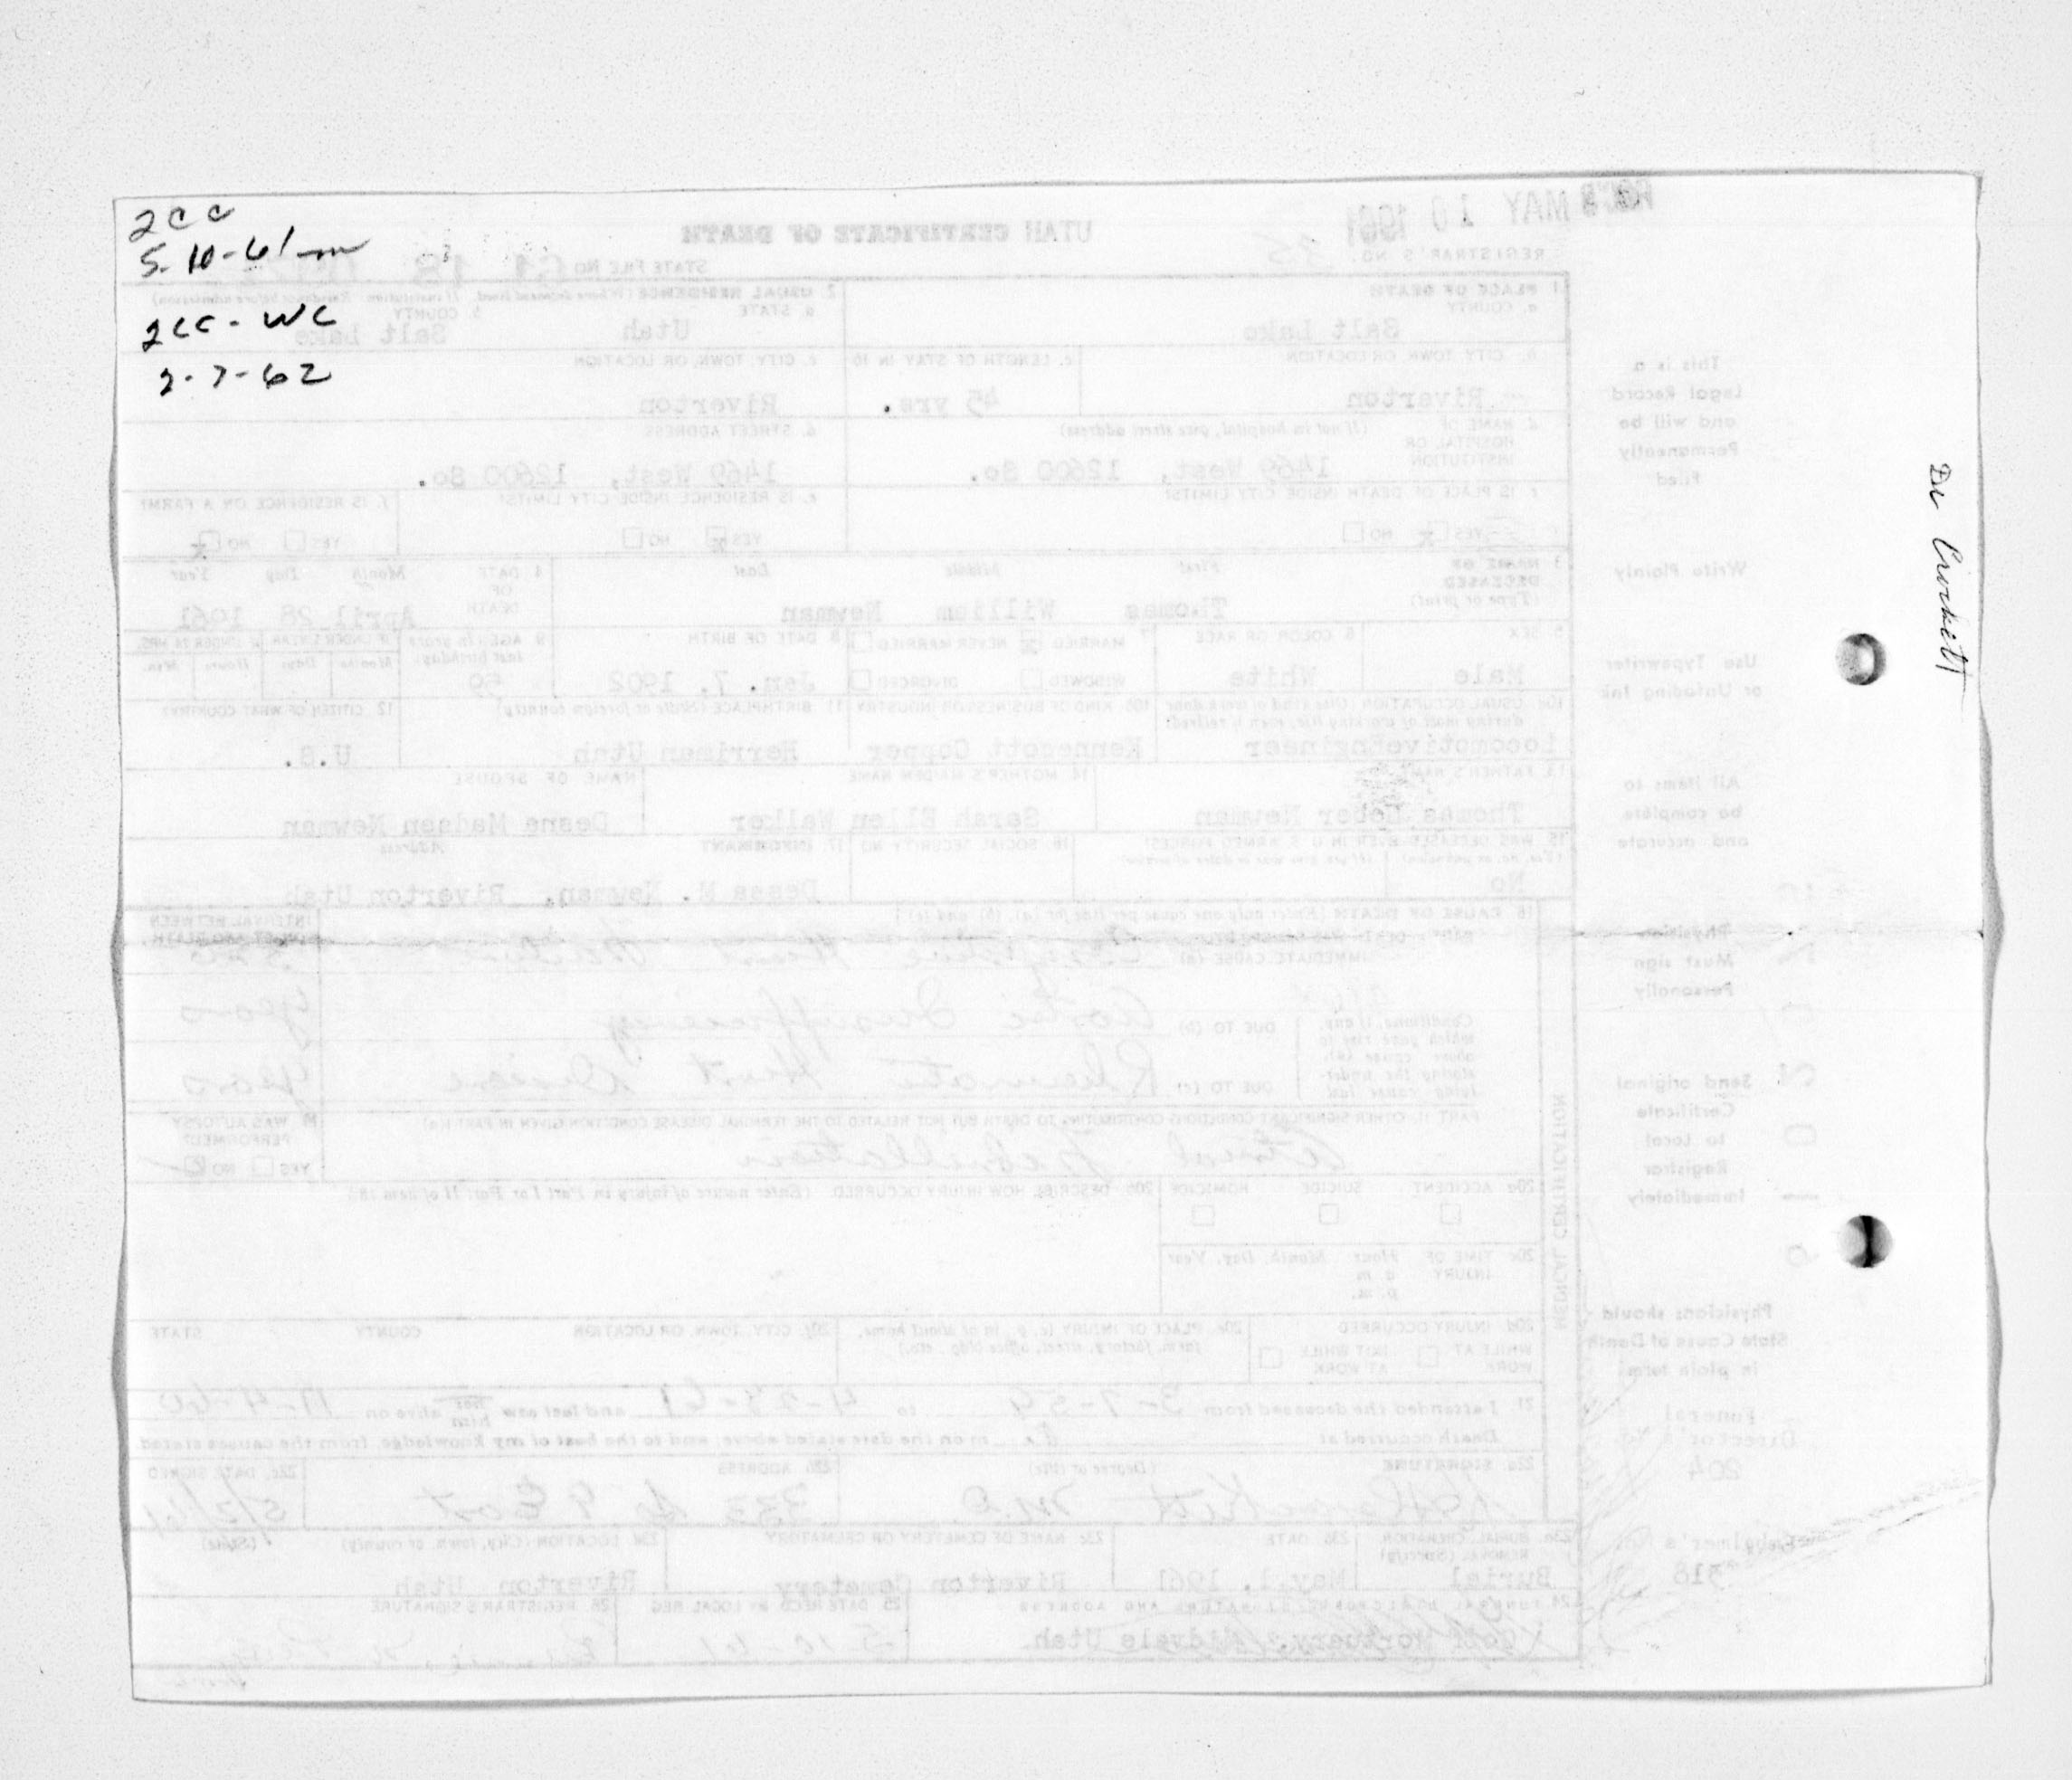 2cc
5-10-61 m
2cc - WC
2-7-62
Dr Crockett
REC'D MAY 10 1961
UTAH CERTIFICATE OF DEATH
REGISTRAR'S NO. 35
STATE FILE NO. 61 18
1. PLACE OF DEATH
a. COUNTY
Salt Lake
2. USUAL RESIDENCE (Where deceased lived. If institution: Residence before admission)
a. STATE
Utah
b. COUNTY
Salt Lake
b. CITY, TOWN, OR LOCATION
Riverton
c. LENGTH OF STAY IN 1b
45 yrs.
c. CITY, TOWN, OR LOCATION
Riverton
d. NAME OF HOSPITAL OR INSTITUTION
(If not in hospital, give street address)
1469 West, 12600 So.
d. STREET ADDRESS
1469 West, 12600 So.
e. IS PLACE OF DEATH INSIDE CITY LIMITS?
YES NO
e. IS RESIDENCE INSIDE CITY LIMITS?
YES NO
f. IS RESIDENCE ON A FARM?
YES NO
3. NAME OF DECEASED
(Type or print)
First Middle Last
Thomas William Newman
4. DATE OF DEATH
Month Day Year
April 28 1961
5. SEX
Male
6. COLOR OR RACE
White
7. MARRIED NEVER MARRIED
WIDOWED DIVORCED
8. DATE OF BIRTH
Jan. 7, 1902
9. AGE (In years last birthday)
59
IF UNDER 1 YEAR
Months Days
IF UNDER 24 HRS.
Hours Min.
10a. USUAL OCCUPATION (Give kind of work done during most of working life, even if retired)
Locomotive Engineer
10b. KIND OF BUSINESS OR INDUSTRY
Kennecott Copper
11. BIRTHPLACE (State or foreign country)
Herriman Utah
12. CITIZEN OF WHAT COUNTRY?
U.S.
13. FATHER'S NAME
Thomas Heber Newman
14. MOTHER'S MAIDEN NAME
Sarah Ellen Walker
NAME OF SPOUSE
Deane Madsen Newman
15. WAS DECEASED EVER IN U. S. ARMED FORCES?
(Yes, no, or unknown) (If yes, give war or dates of service)
No
16. SOCIAL SECURITY NO.
17. INFORMANT Address
M. Newman, Riverton Utah
18. CAUSE OF DEATH (Enter only one cause per line for (a), (b), and (c).)
PART I. DEATH WAS CAUSED BY:
IMMEDIATE CAUSE (a)
Congestive Heart Failure
INTERVAL BETWEEN ONSET AND DEATH
Conditions, if any, which gave rise to above cause (a), stating the underlying cause last
DUE TO (b) Aortic Insufficiency
years
DUE TO (c) Rheumatic Heart Disease
years
PART II. OTHER SIGNIFICANT CONDITIONS CONTRIBUTING TO DEATH BUT NOT RELATED TO THE TERMINAL DISEASE CONDITION GIVEN IN PART I(a)
Atrial Fibrillation
19. WAS AUTOPSY PERFORMED?
YES NO
20a. ACCIDENT SUICIDE HOMICIDE
20b. DESCRIBE HOW INJURY OCCURRED. (Enter nature of injury in Part I or Part II of item 18.)
20c. TIME OF INJURY Hour Month, Day, Year
a. m.
p. m.
20d. INJURY OCCURRED
WHILE AT WORK NOT WHILE AT WORK
20e. PLACE OF INJURY (e. g., in or about home, farm, factory, street, office bldg., etc.)
20f. CITY, TOWN, OR LOCATION COUNTY STATE
21. I attended the deceased from 3-7-59 to 4-23-61 and last saw him alive on 11-4-60
Death occurred at m on the date stated above; and to the best of my knowledge, from the causes stated.
22a. SIGNATURE (Degree or title)
M.D.
22b. ADDRESS
333 So 9 East
22c. DATE SIGNED
5/2/61
23a. BURIAL, CREMATION, REMOVAL (Specify)
Burial
23b. DATE
May 1, 1961
23c. NAME OF CEMETERY OR CREMATORY
Riverton Cemetery
23d. LOCATION (City, town, or county) (State)
Riverton Utah
24. FUNERAL DIRECTOR'S SIGNATURE AND ADDRESS
Mortuary, Midvale Utah.
25. DATE REC'D BY LOCAL REG.
5-10-61
26. REGISTRAR'S SIGNATURE
MEDICAL CERTIFICATION
This is a Legal Record and will be Permanently filed
Write Plainly
Use Typewriter or Unfading Ink
All items to be complete and accurate
Physician Must sign Personally
Send original Certificate to Local Registrar Immediately
Physician: should State Cause of Death in plain term
Funeral Director's No.
204
Embalmer's No.
318